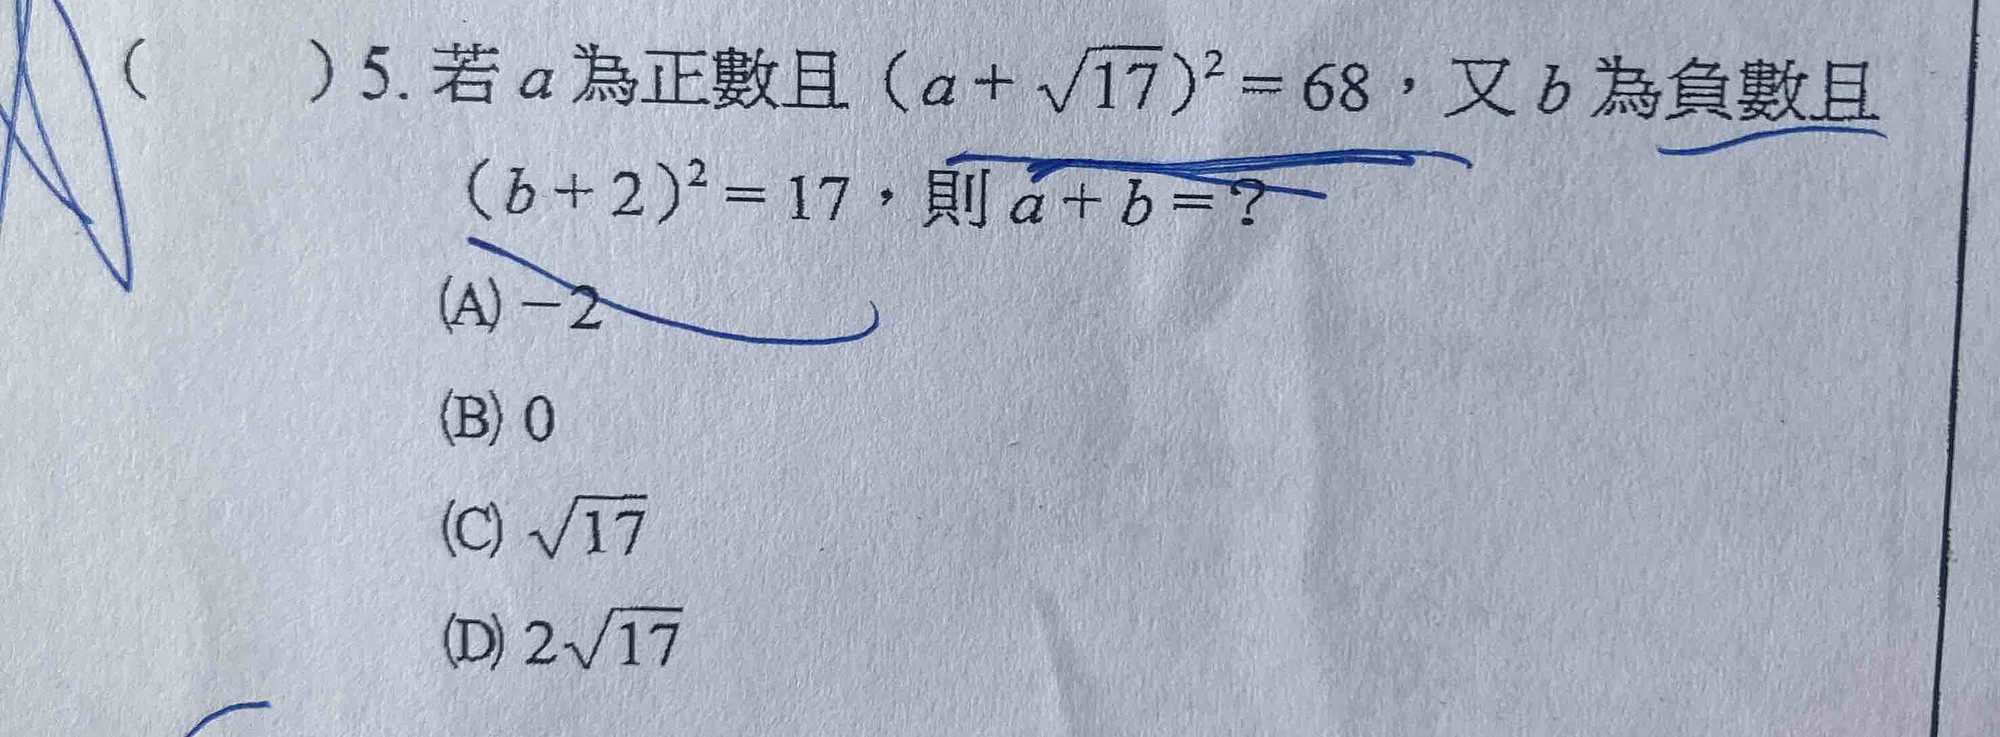 ( )5. 若 a 為正數且（a + √17）² = 68，又 b 為負數且
（b + 2）² = 17，則 a + b = ?
(A) −2
(B) 0
(C) √17
(D) 2√17